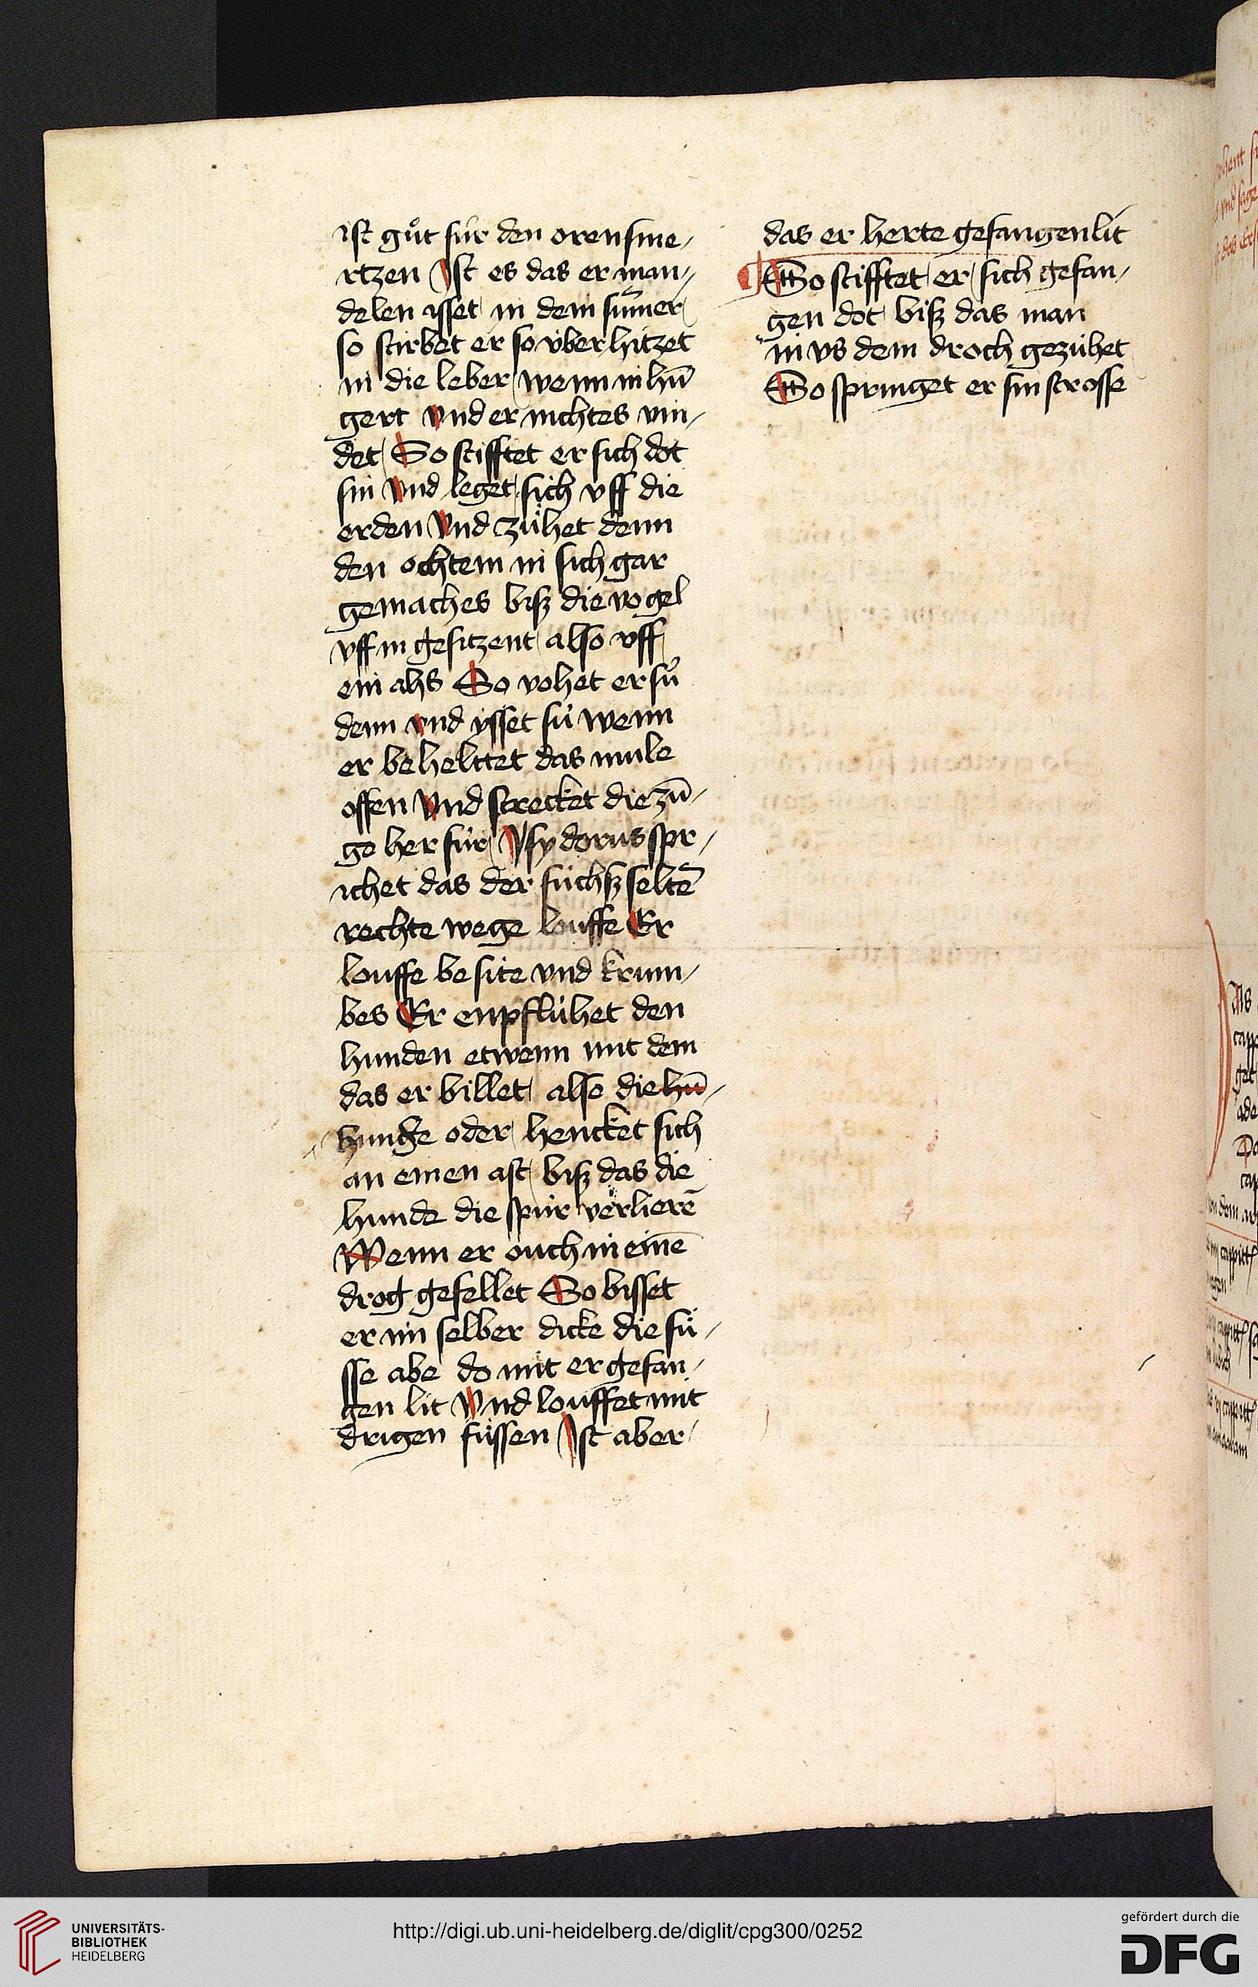 ist gůt für den orensme⸗
rtzen Ist es das er man⸗
delen isset in dem sūmer
so stirbet er so v́berhitzet
in die leber wenn in hūn
gert vnd er nichtes vin⸗
det So stifftet er sich dot
sin vnd leget sich vff die
erden vnd zühet denn
den ochtem in sich gar
gemaches biß die vogel
vff in gesitzent also vff
ein ahs So vohet er sú
denn vnd ysset sú wenn
er beheltet das mule
offen vnd strecket die zū⸗
ge her für Isydorus spr⸗
ichet das der füchß seltē
rechte wege louffe Er
louffe besite vnd krum⸗
bes Er enpflúhet den
hunden etwenn mit dem
das er billet also die hū⸗
hunde oder hencket sich
an einen ast biß das die
hunde die spur verlierē
Wenn er ouch in einē
drog gefellet So bisset
er im selber dicke die fü⸗
sse abe do mit er gefan⸗
gen lit Vnd louffet mit
drigen füssen Ist aber
das er herte gefangen lit
So stifftet er sich gefan⸗
gen dot biß das man
in vs dem droch gezühet
So springet er sin strosse
UNIVERSITÄTS-
BIBLIOTHEK
HEIDELBERG
http://digi.ub.uni-heidelberg.de/diglit/cpg300/0252
gefördert durch die
DFG